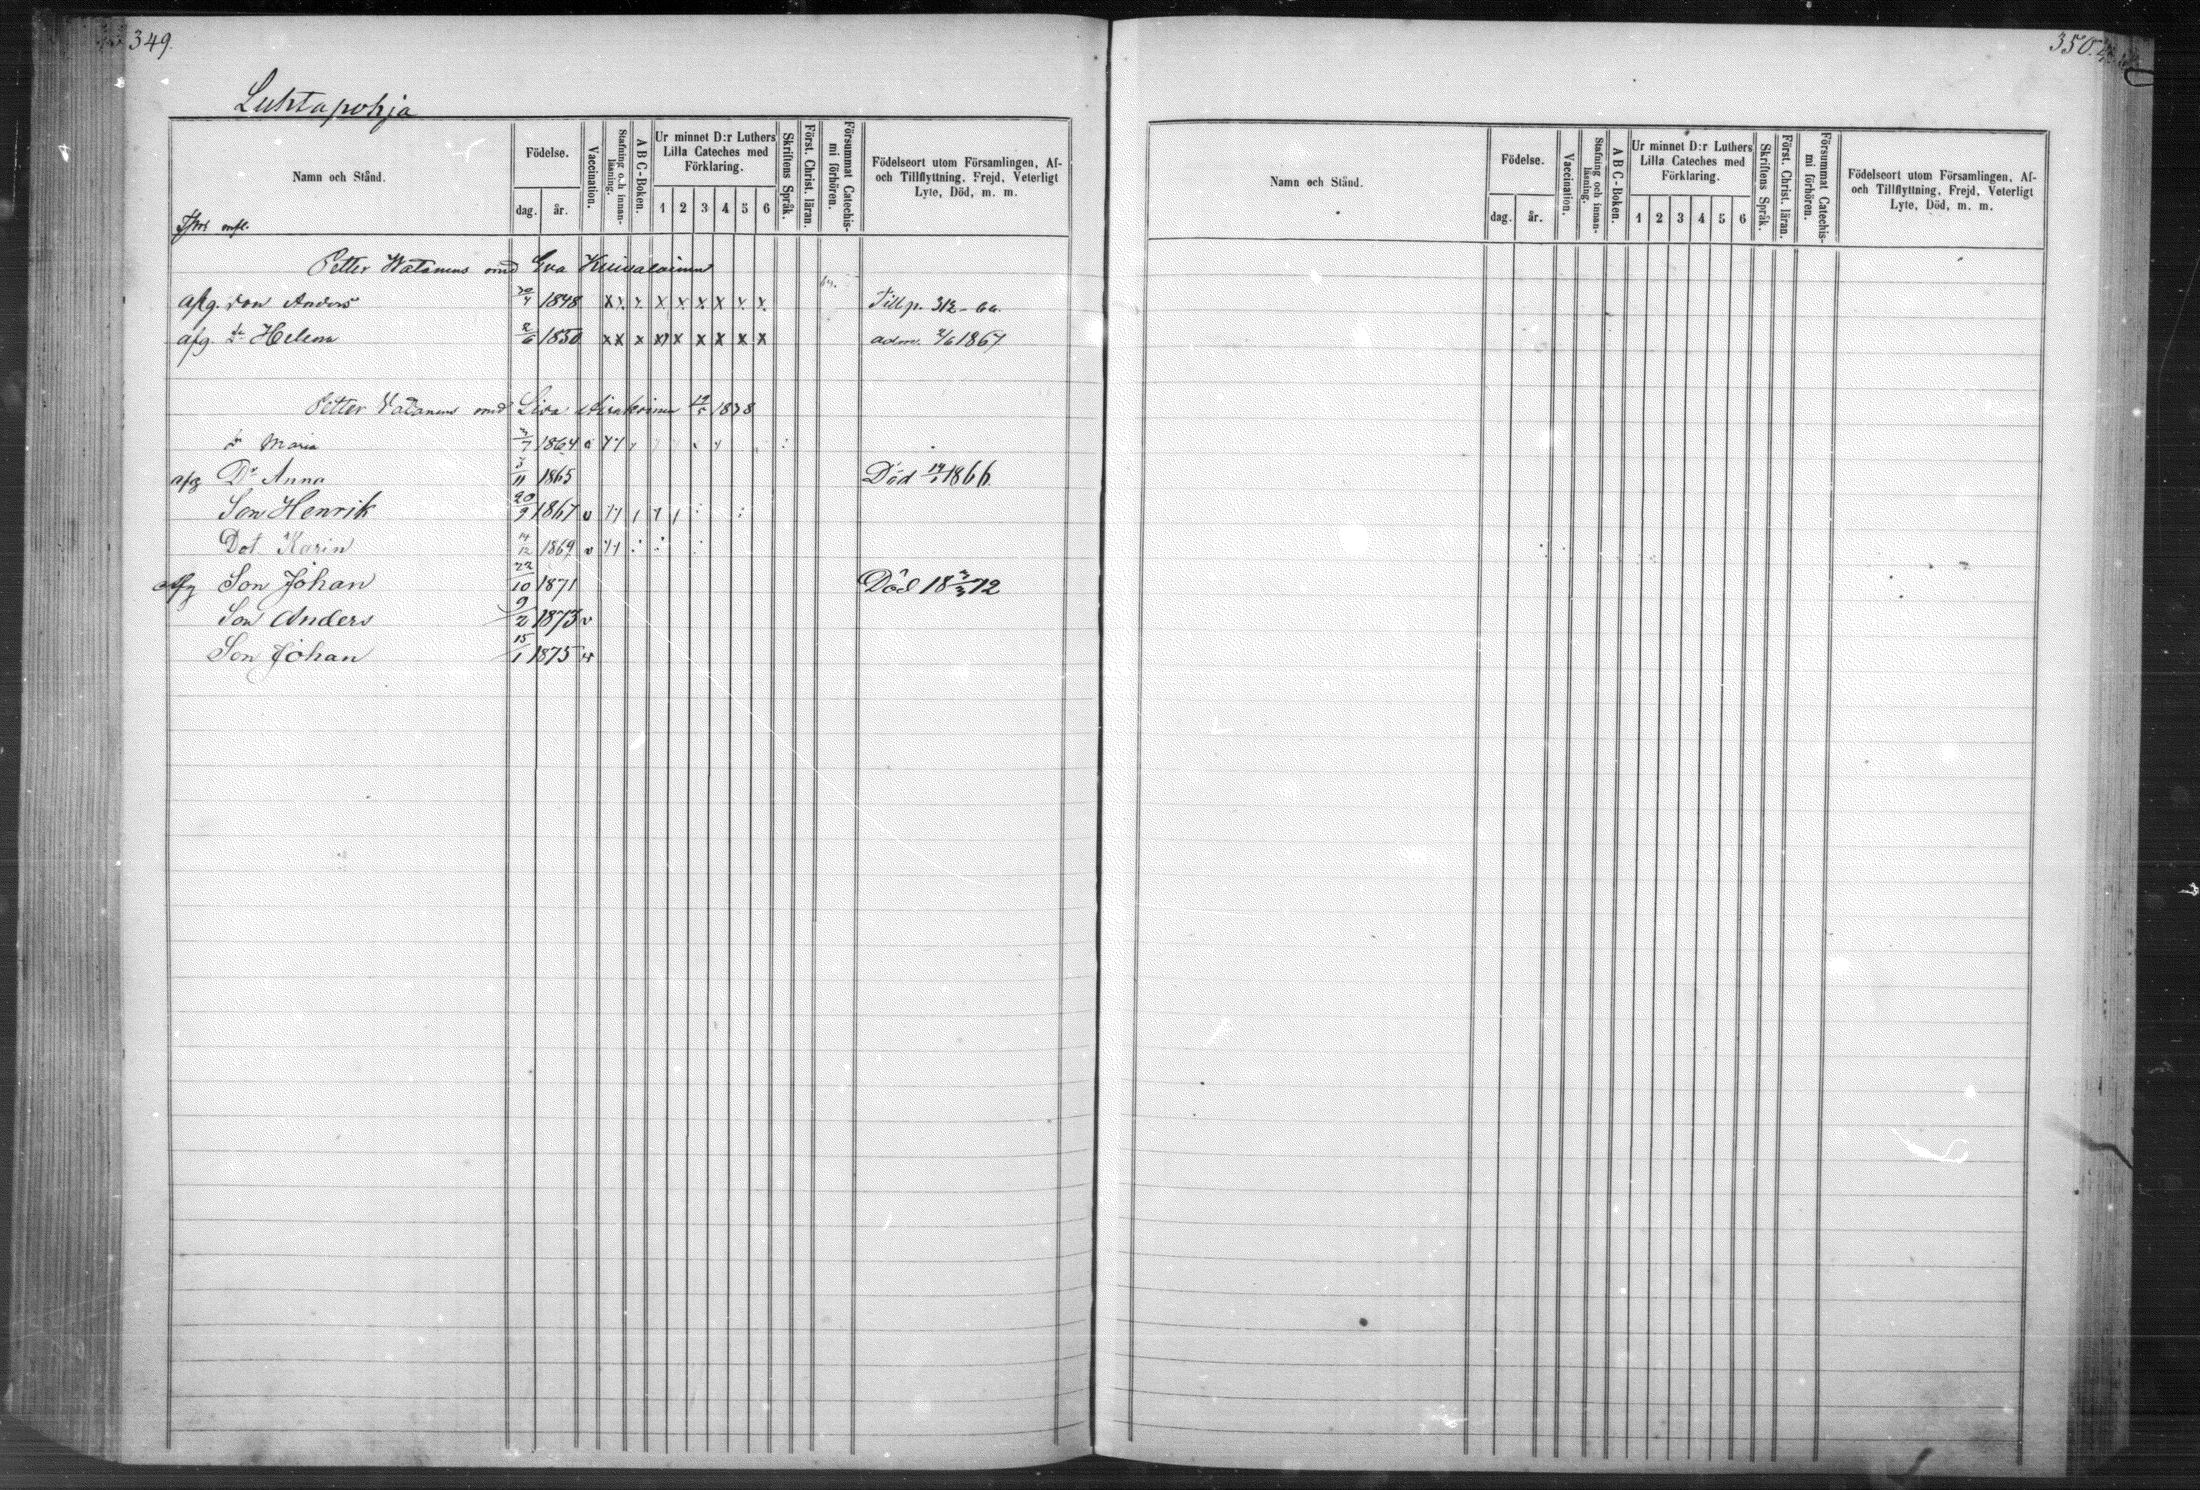 349.
Luhtapohja
Namn och Stånd.
Födelse.
dag. år.
Vaccination.
Stafning och innan-läsning.
A B C-Boken.
Ur minnet D:r Luthers Lilla Cateches med Förklaring.
1 2 3 4 5 6
Skriftens Språk.
Först. Christ. läran.
Försummat Catechis-mi förhören.
Födelseort utom Församlingen, Af- och Tillflyttning, Frejd, Veterligt Lyte, Död, m. m.
Petter Watanens med Eva
afg. son Anders 30/4 1848 x x x x x x x x x Till p. 312
afg. dr Helena 2/6 1850 x x x x x x x x x adm. 2/6 1867
Petter Vatanens med Lisa 19/5 1838
dr Maria 3/7 1864
afg Dr Anna 3/11 1865 Död 1866
Son Henrik 20/9 1867 v
Dot Karin 14/12 1869 v
Afg Son Johan 22/10 1871 Död 18 3/3 72
Son Anders 9/2 1873 v
Son Johan 15/1 1875 v
350.
Namn och Stånd.
Födelse.
dag. år.
Vaccination.
Stafning och innan-läsning.
A B C-Boken.
Ur minnet D:r Luthers Lilla Cateches med Förklaring.
1 2 3 4 5 6
Skriftens Språk.
Först. Christ. läran.
Försummat Catechis-mi förhören.
Födelseort utom Församlingen, Af- och Tillflyttning, Frejd, Veterligt Lyte, Död, m. m.